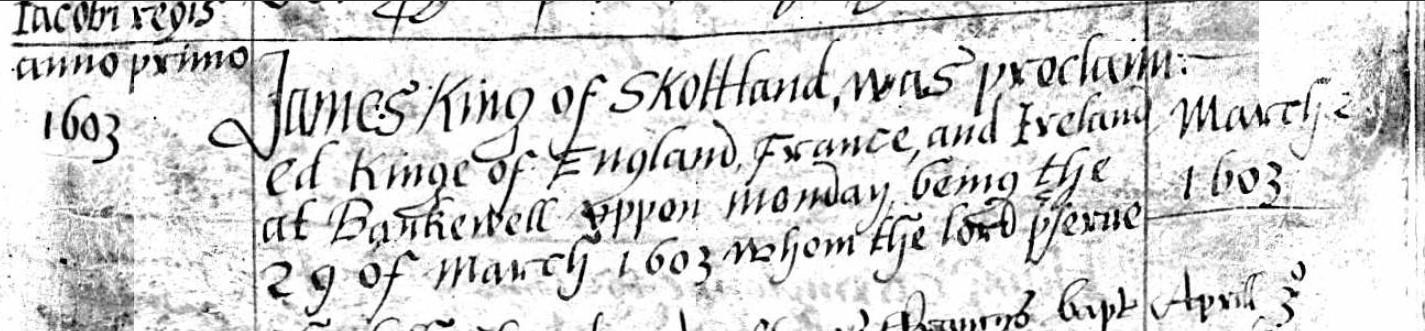 Iacobi regis
anno primo
1603
James King of Skottland, was proclaim:
ed Kinge of England, France, and Ireland
at Bankewell vppon monday, being the
29 of March 1603 whom the lord pserue
Marche
1603
bapt April 3